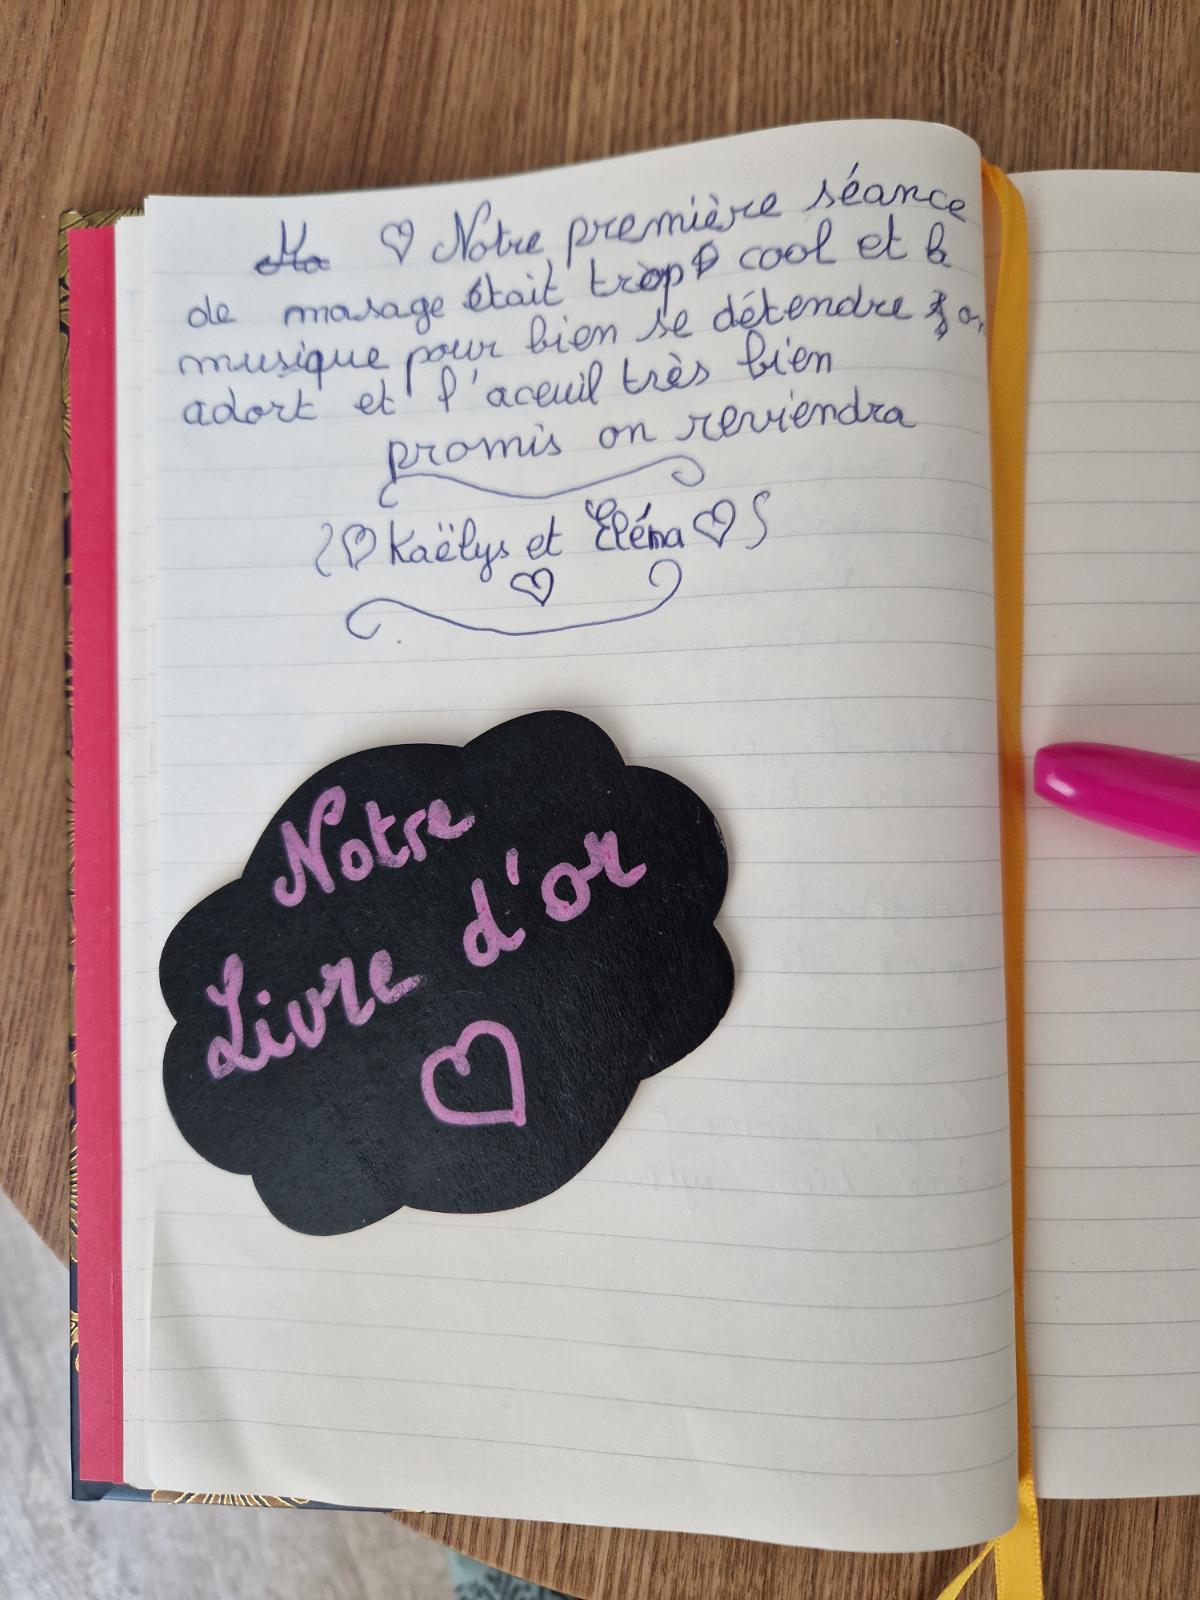 Ma ♡ Notre première séance
de masage était trop cool et la
musique pour bien se détendre on
adort et l'aceuil très bien
promis on reviendra
♡ Kaëlys et Eléna ♡
♡
Notre
Livre d'or
♡